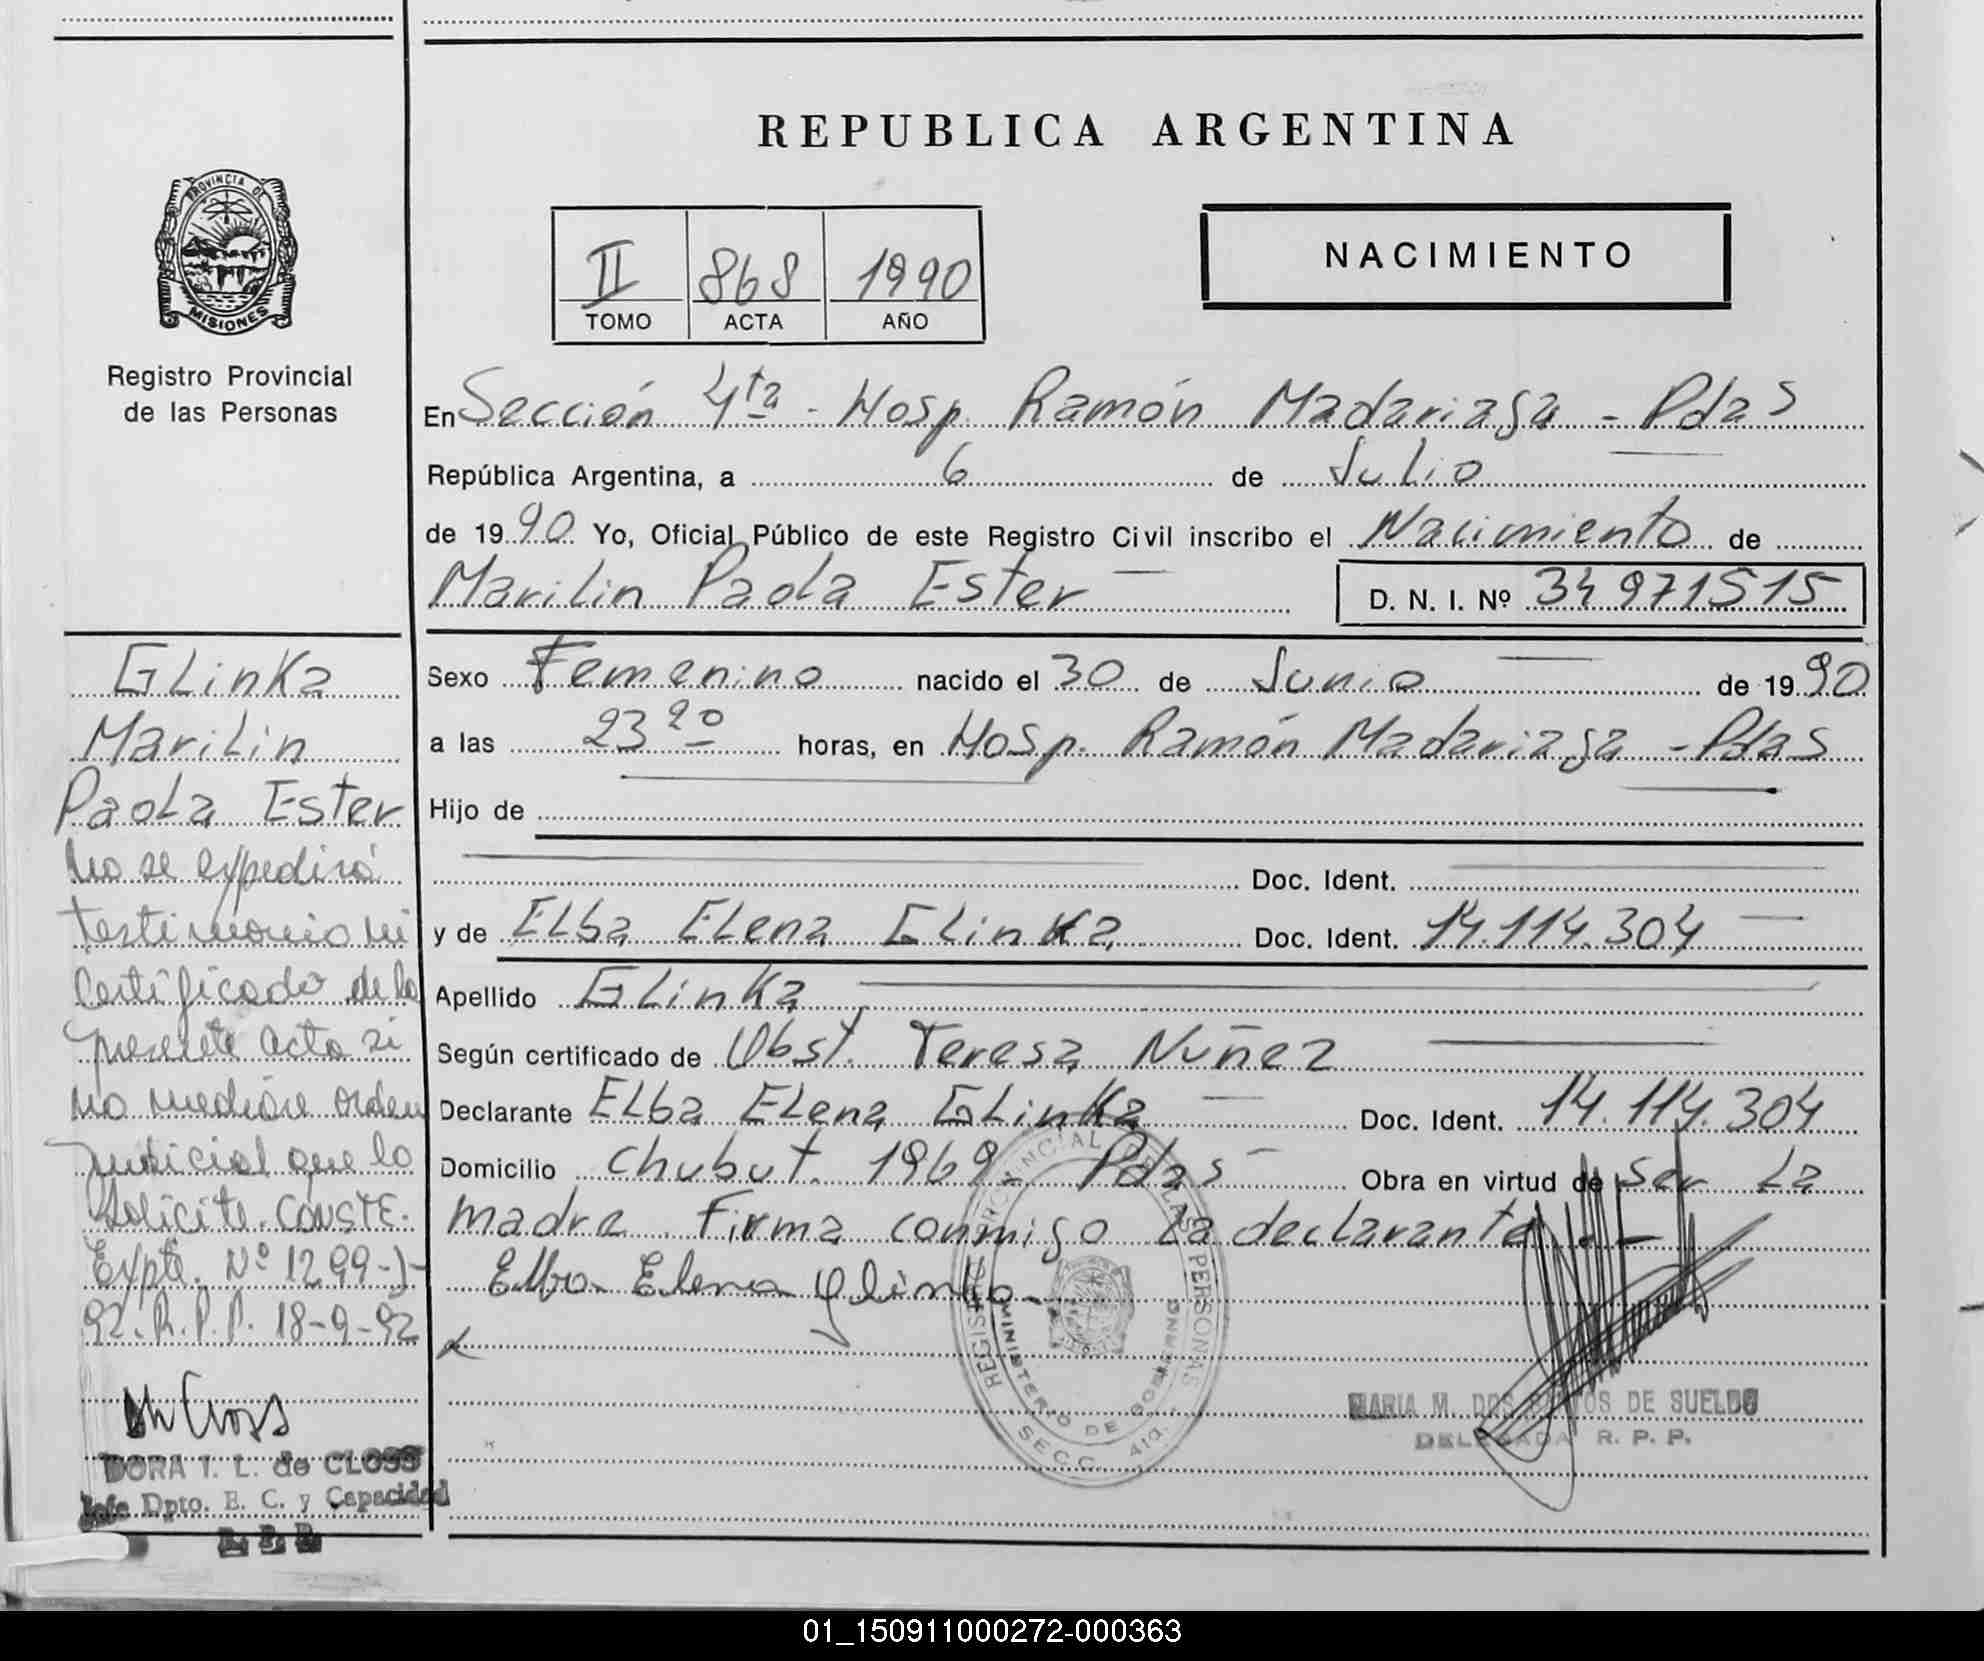 REPUBLICA ARGENTINA
PROVINCIA DE
MISIONES
Registro Provincial
de las Personas
II 868 1990
TOMO ACTA AÑO
NACIMIENTO
En Sección 4ta - Hosp. Ramón Madariaga - Pdas
República Argentina, a 6 de Julio
de 1990 Yo, Oficial Público de este Registro Civil inscribo el Nacimiento de
Marilin Paola Ester D. N. I. Nº 34 971515
Sexo Femenino nacido el 30 de Junio de 1990
a las 23 20 horas, en Hosp. Ramón Madariaga - Pdas
Hijo de
Doc. Ident.
y de Elba Elena Glinka Doc. Ident. 14.114.304
Apellido Glinka
Según certificado de Obst. Teresa Nuñez
Declarante Elba Elena Glinka Doc. Ident. 14.114.304
Domicilio Chubut. 1969 Pdas Obra en virtud de Ser La
madre. Firma conmigo La declarante. -
Elba Elena Glinka
REGISTRO PROVINCIAL DE LAS PERSONAS
MINISTERIO DE GOBIERNO
SECC. 4ta.
MARIA M. DOS SANTOS DE SUELDO
DELEGADA R. P. P.
Glinka
Marilin
Paola Ester
No se expedirá
testimonio ni
Certificado de la
presente acta si
no mediare orden
Judicial que lo
solicite. CONSTE.
Expte. Nº 1299-J-
92. R. P. P. 18-9-92
DORA I. L. de CLOSS
Jefe Dpto. E. C. y Capacidad
R. P. P.
01_150911000272-000363